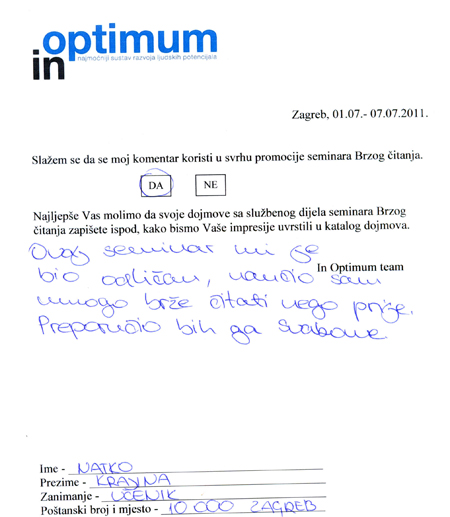 in optimum
najmoćniji sustav razvoja ljudskih potencijala
Zagreb, 01.07.- 07.07.2011.
Slažem se da se moj komentar koristi u svrhu promocije seminara Brzog čitanja.
DA NE
Najljepše Vas molimo da svoje dojmove sa službenog dijela seminara Brzog
čitanja zapišete ispod, kako bismo Vaše impresije uvrstili u katalog dojmova.
Ovaj seminar mi je
bio odličan, naučio sam
In Optimum team
mnogo brže čitati nego prije.
Preporučio bih ga svakome
Ime - NATKO
Prezime - KRAJINA
Zanimanje - UČENIK
Poštanski broj i mjesto - 10 000 ZAGREB